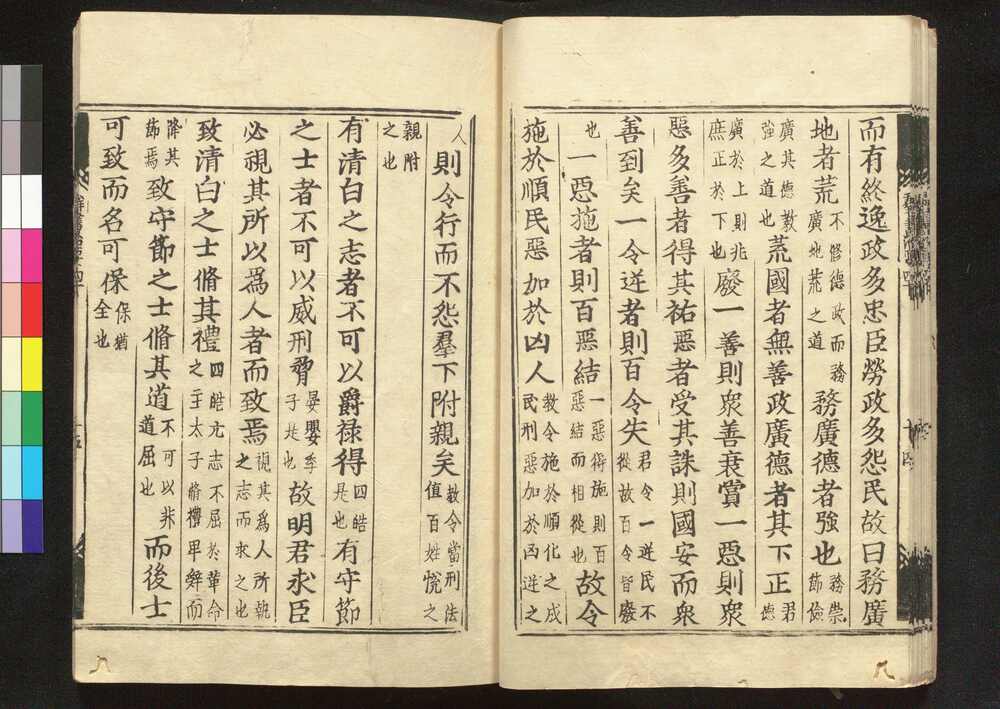 而有終逸政多忠臣勞政多怨民故曰務廣
地者荒不修德政而務廣地荒之道務廣德者強也務崇節儉
廣其德教強之道也荒國者無善政廣德者其下正君德
廣於上則兆庶正於下也廢一善則衆善衰賞一惡則衆
惡多善者得其祐惡者受其誅則國安而衆
善到矣一令逆者則百令失君令一逆民不從故百令皆廢
也一惡施者則百惡結一惡得施則百惡結而相從也故令
施於順民惡加於凶人教令施於順化之民刑惡加於凶逆之
人則令行而不怨羣下附親矣教令當刑法值百姓悅之
親附之也
有清白之志者不可以爵祿得四皓是也有守節
之士者不可以威刑脅晏嬰季子是也故明君求臣
必視其所以爲人者而致焉視其爲人所執之志而求之也
致清白之士脩其禮四皓亢志不屈於革命之主太子脩禮卑辭而
降其節焉致守節之士脩其道不可以非道屈也而後士
可致而名可保保猶全也